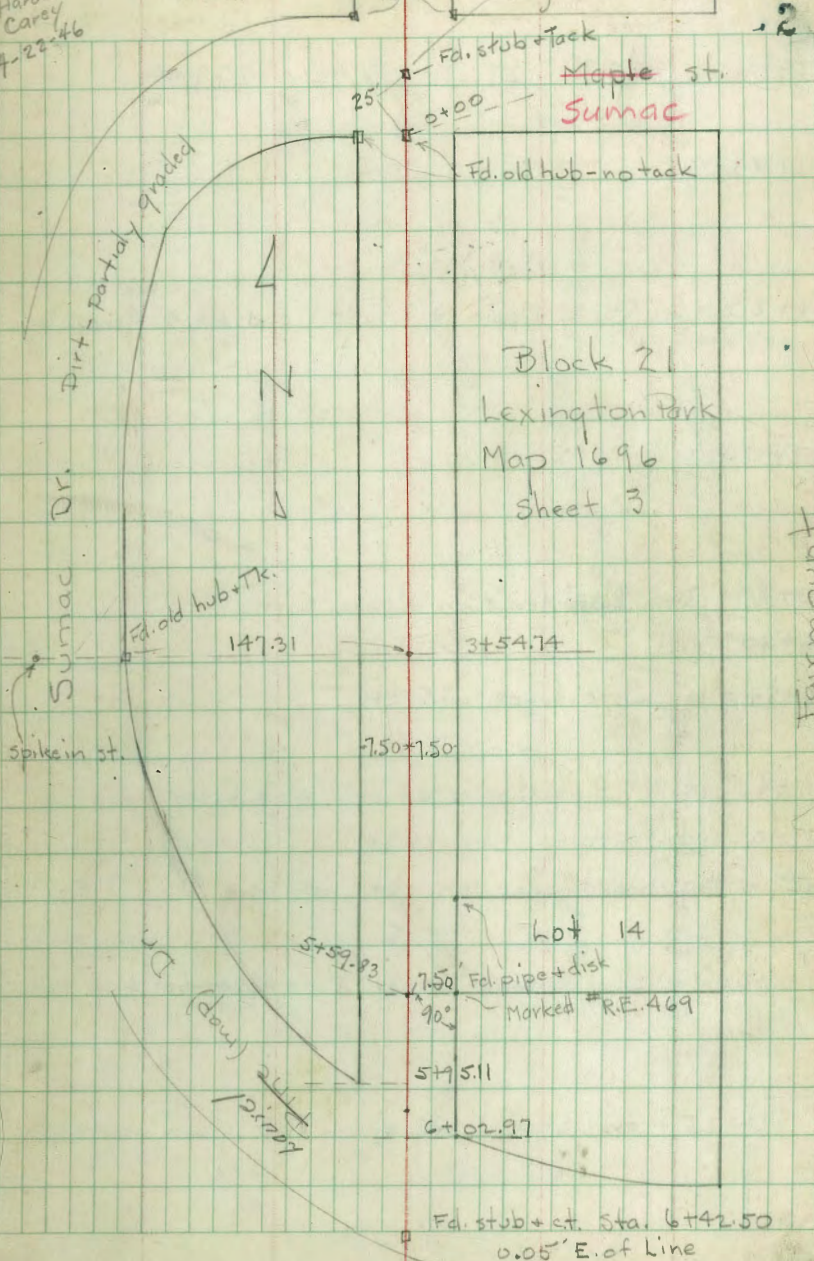 Carey
4-22-46
2
Fd. stub + Tack
Maple st.
Sumac
25'
0+00
Fd. old hub - no tack
Dirt - Partialy graded
N
Block 21
Lexington Park
Map 1696
Sheet 3
Sumac Dr.
Fairmount
Fd. old hub + Tk.
147.31
3+54.74
spike in st.
7.50 7.50
Lot 14
5+59.83
7.50' Fd. pipe + disk
90° Marked #R.E. 469
Dr.
(map)
Pine
Laurel
5+95.11
6+02.97
Fd. stub + c.t. Sta. 6+42.50
0.05' E. of Line